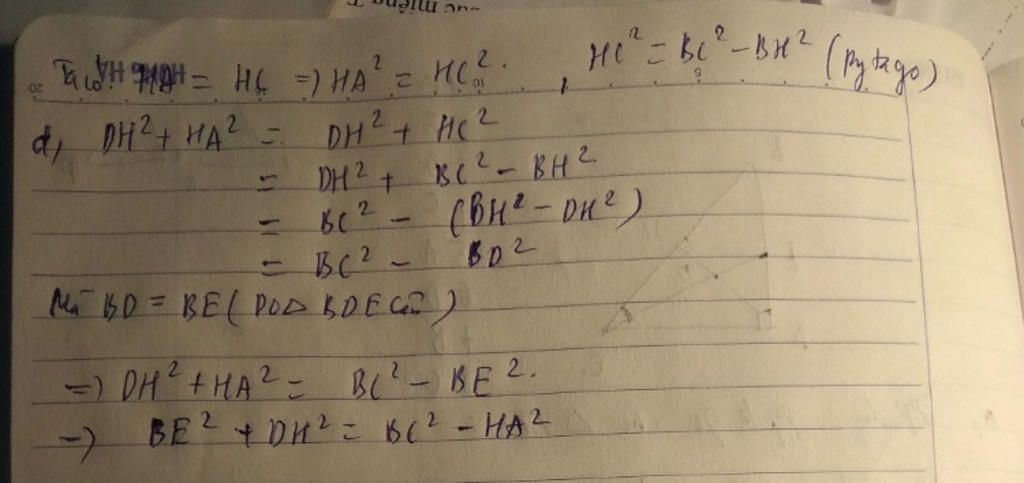 Ta có HA = HC => HA² = HC². , HC² = BC² - BH² (Pytago)
d, DH² + HA² = DH² + HC²
= DH² + BC² - BH²
= BC² - (BH² - DH²)
= BC² - BD²
Mà BD = BE (Do △ BDE cân)
=> DH² + HA² = BC² - BE².
-> BE² + DH² = BC² - HA²